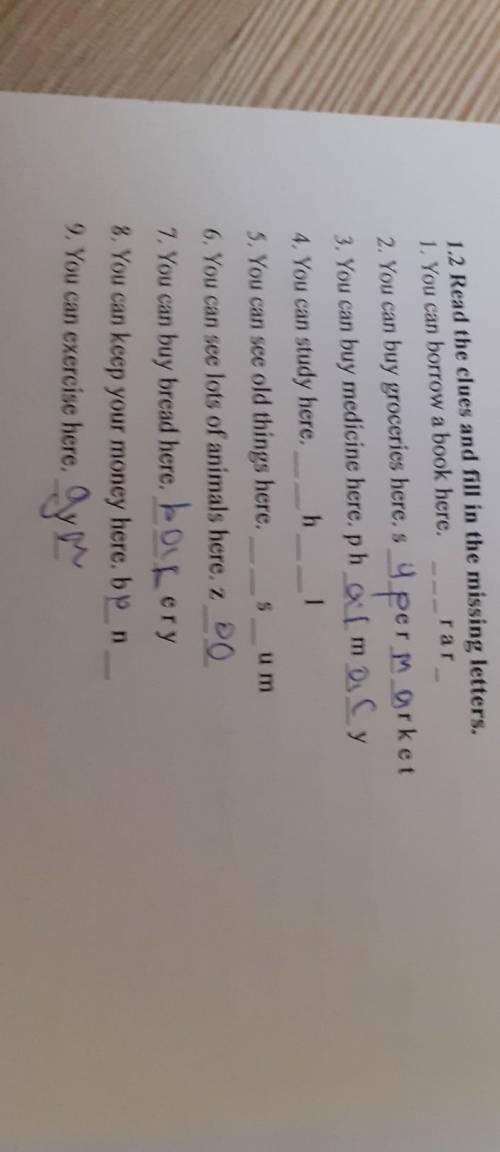 1.2 Read the clues and fill in the missing letters.
1. You can borrow a book here. _ _ _ r a r _
2. You can buy groceries here. s u p e r m a r k e t
3. You can buy medicine here. p h a r m a c y
4. You can study here. _ _ h _ _ l
5. You can see old things here. _ _ s _ u m
6. You can see lots of animals here. z oo
7. You can buy bread here. b a k e r y
8. You can keep your money here. b a n _
9. You can exercise here. g y m